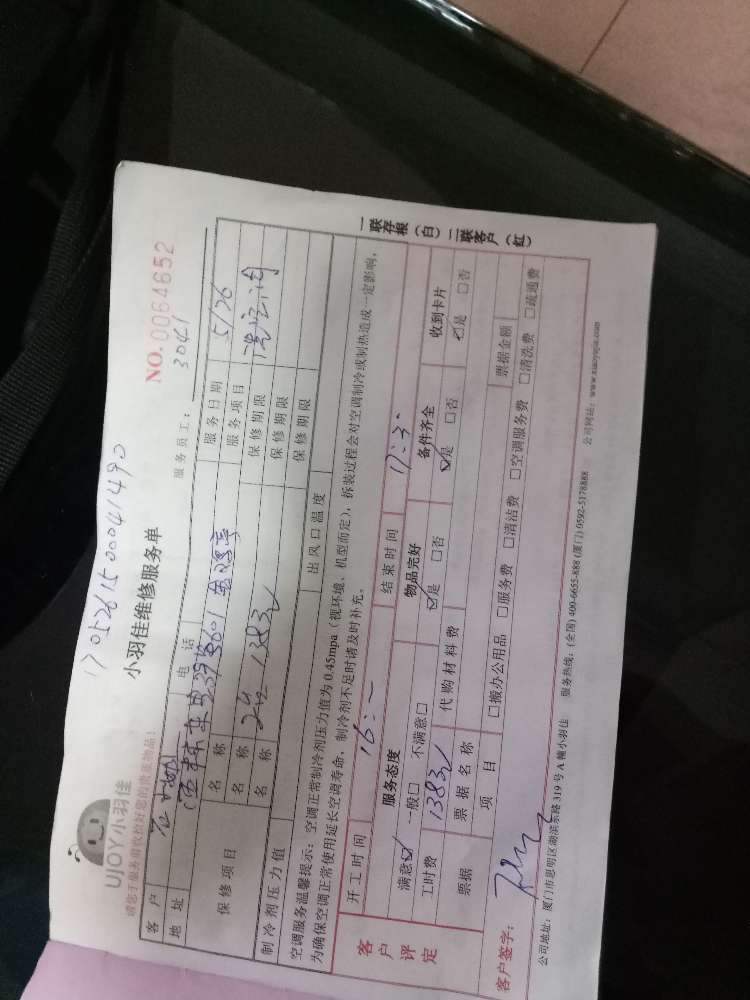 17052615 00041490
UJOY小羽佳
小羽佳维修服务单
NO.0064652
请您于服务前收拾好您的贵重物品!
服务员工: 3041
客户
电话
服务日期 5/26
地址
服务项目
保修项目
名称
保修期限
名称
保修期限
名称
保修期限
制冷剂压力值
出风口温度
空调服务温馨提示:空调正常制冷剂压力值为0.45mpa(视环境、机型而定),拆装过程会对空调制冷或制热造成一定影响,
为确保空调正常使用延长空调寿命,制冷剂不足时请及时补充。
开工时间 16:
结束时间 17:3
客户评定
服务态度
物品完好
备件齐全
收到卡片
满意☑ 一般□ 不满意□
☑是 □否
☑是 □否
☑是 □否
工时费 138元
代购材料费
票据
票据名称
票据金额
项目
□搬办公用品 □服务费 □清洁费 □空调服务费 □清洗费 □疏通费
客户签字:
公司地址:厦门市思明区湖滨东路319号A幢小羽佳 服务热线:(全国) 400-6655-888 (厦门) 0592-5178888 公司网站:www.xiaoyujia.com
一联存根(白) 二联客户(红)